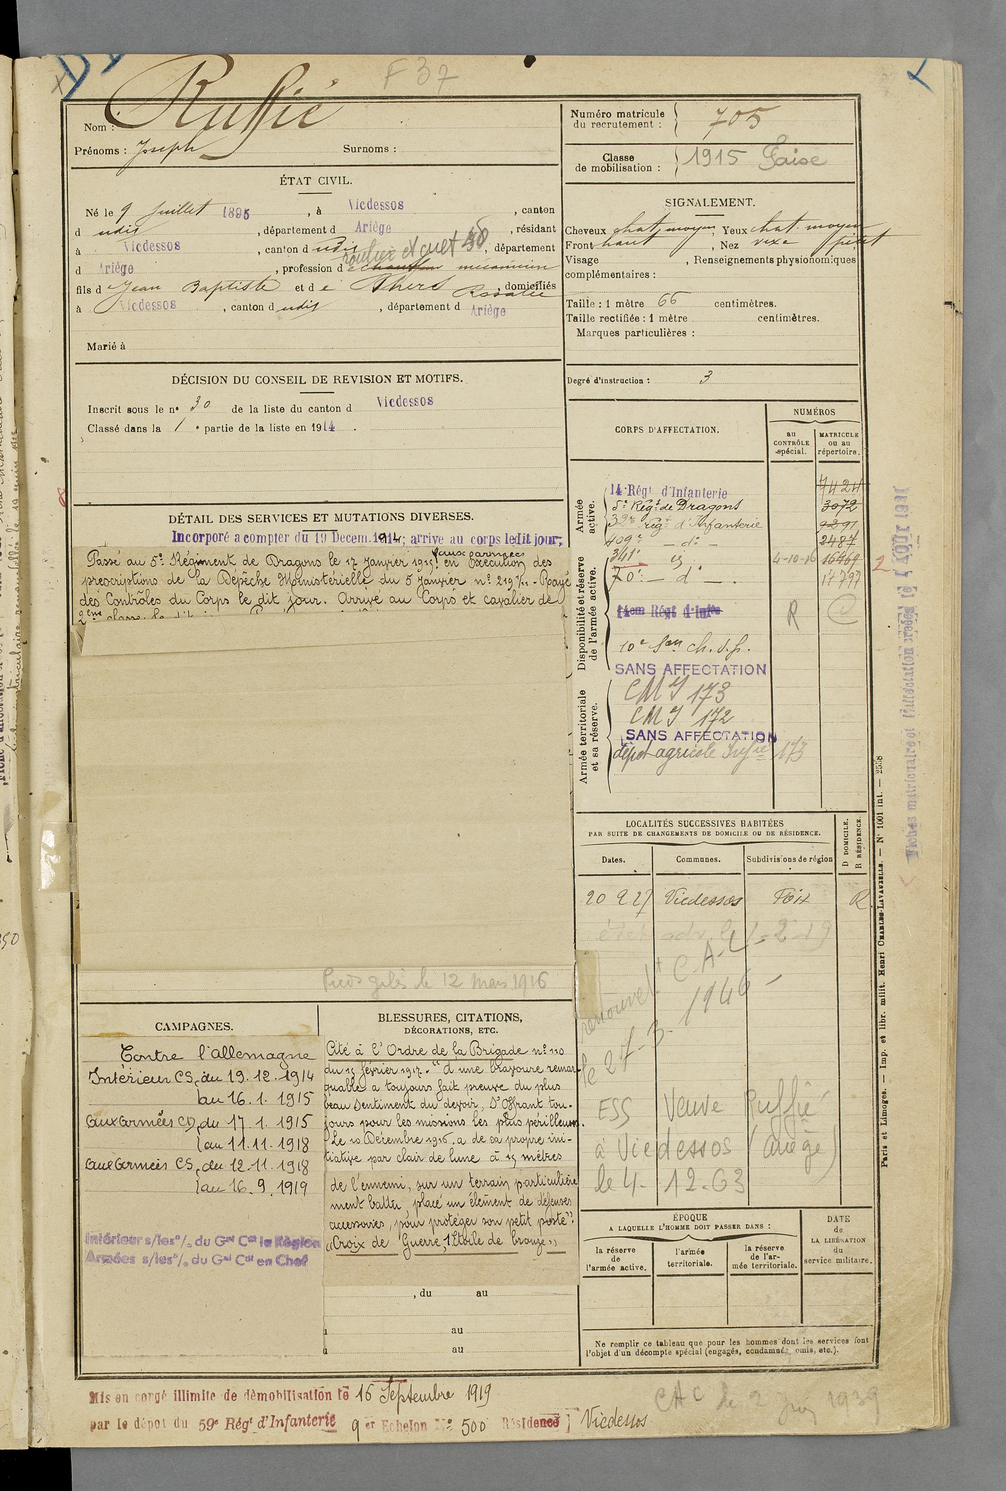 F 37
Nom : Ruffié
Prénoms : Joseph Surnoms :
ÉTAT CIVIL.
Né le 9 Juillet 1895, à Vicdessos, canton
d udit, département d Ariège, résidant
à Vicdessos, canton d udit, département
d Ariège, profession de mécanicien
fils d Jean Baptiste et de Rosalie, domiciliés
à Vicdessos, canton d udit, département d Ariège
Marié à
DÉCISION DU CONSEIL DE REVISION ET MOTIFS.
Inscrit sous le nº 30 de la liste du canton d Vicdessos
Classé dans la 1 e partie de la liste en 1914.
DÉTAIL DES SERVICES ET MUTATIONS DIVERSES.
Incorporé a compter du 19 Decem. 1914; arrive au corps ledit jour;
Passé au 5e Régiment de Dragons le 17 Janvier 1915. En exécution des
prescriptions de la Dépêche Ministérielle du 5 Janvier nº 219 - Rayé
des Contrôles du Corps le dit jour. Arrivé au Corps et cavalier de
2ème classe le dit
Pieds gelés le 12 mars 1916
CAMPAGNES.
Contre l'allemagne
Intérieur CS, du 19.12.1914
au 16.1.1915
aux armées CD, du 17.1.1915
au 11.11.1918
aux armées CS, du 12.11.1918
au 16.9.1919
Intérieur s/les o/. du Gal Ct la Région
Armées s/les o/. du Gal Ct en Chef
BLESSURES, CITATIONS,
DÉCORATIONS, ETC.
Cité à l'Ordre de la Brigade nº 110
du 15 février 1917. "d'une bravoure remar-
quable a toujours fait preuve du plus
beau sentiment du devoir, s'offrant tou-
jours pour les missions les plus périlleuses.
Le 10 Décembre 1916, a de sa propre ini-
tiative par clair de lune à 15 mètres
de l'ennemi, sur un terrain particulière
ment battu, placé un élément de défenses
accessoires, pour protéger son petit poste".
"Croix de Guerre, 1 Etoile de bronze"
, du au
au
au
Mis en congé illimité de démobilisation le 16 Septembre 1919
par le dépôt du 59e Régt d'Infanterie 9 er Echelon Nº 500 Résidence Vicdessos
Numéro matricule
du recrutement : 705
Classe
de mobilisation : 1915
SIGNALEMENT.
Cheveux chat moyen Yeux chat moyen
Front haut, Nez vexe petit
Visage , Renseignements physionomiques
complémentaires :
Taille : 1 mètre 66 centimètres.
Taille rectifiée : 1 mètre centimètres.
Marques particulières :
Degré d'instruction : 3
CORPS D'AFFECTATION.
NUMÉROS
au
CONTRÔLE
spécial.
MATRICULE
ou au
répertoire.
Armée
active.
14 Régt d'Infanterie
5e Régt de Dragons 3072
Régt d'Infanterie
409e — d° — 2487
Disponibilité et réserve
de l'armée active.
341e 4-10-16
70e — d° — 17297
14em Régt d'Infie R C
SANS AFFECTATION
Armée territoriale
et sa réserve.
CMI 173
CMI 172
SANS AFFECTATION
dépôt agricole 173
LOCALITÉS SUCCESSIVES HABITÉES
PAR SUITE DE CHANGEMENTS DE DOMICILE OU DE RÉSIDENCE.
Dates. Communes. Subdivisions de région
D DOMICILE.
R RÉSIDENCE.
20 9 27 Vicdessos Foix R
renouvelt C.A.C
le 27-3-1946
ESS Veuve Ruffié
à Vicdessos (Ariège)
le 4-12-63
ÉPOQUE
A LAQUELLE L'HOMME DOIT PASSER DANS :
la réserve
de
l'armée active.
l'armée
territoriale.
la réserve
de l'ar-
mée territoriale.
DATE
de
LA LIBÉRATION
du
service militaire.
Ne remplir ce tableau que pour les hommes dont les services font
l'objet d'un décompte spécial (engagés, condamnés, omis, etc.).
CAC le 2 1939
Paris et Limoges. — Imp. et libr. milit. Henri CHARLES-LAVAUZELLE. — Nº 1001 int. — 2558